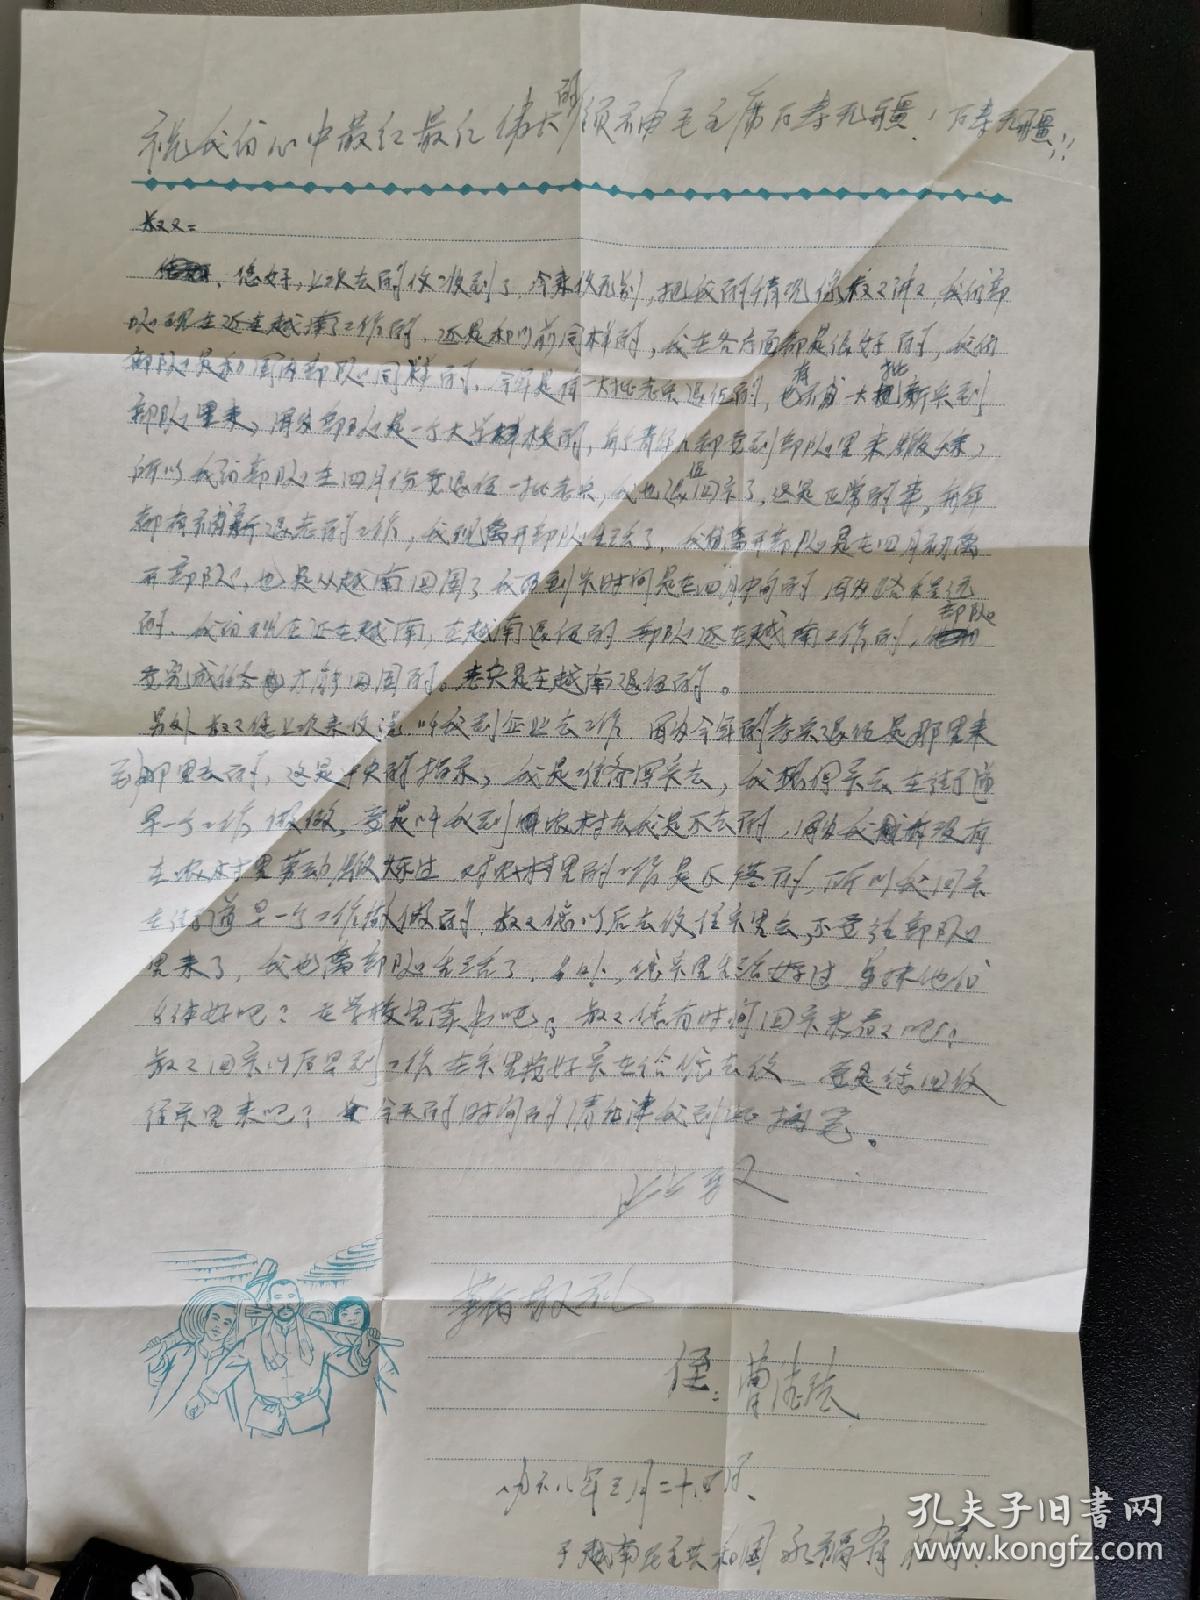 祝我们心中最红最红伟大的领袖毛主席万寿无疆！万寿无疆！！
叔叔：
您好，上次去的信收到了，今来信无别，把我的情况像叔叔讲讲，我们部
队现在还在越南工作的，还是和以前同样的，我在各方面都是很好的，我们
部队是和国内部队同样的，今年是有一大批老兵退伍的，也有一大批新兵到
部队里来，因为部队是一个大学校的，每个青年人都要到部队里来锻炼，
所以我们部队在四月份要退伍一批老兵，我也退伍回家了，这是正常的事，每年
都有补新退老的工作，我现离开部队生活了，我离开部队是在四月初离
开部队，也是从越南回国，我回到家时间是在四月中旬的，因为路程远
的，我们现在还在越南，在越南退伍的，部队还在越南工作的，部队
要完成任务才能回国的。老兵是在越南退伍的。
另外叔叔您上次来信说，叫我到企业去工作，因为今年的老兵退伍是那里来
到那里去的，这是中央的指示，我是准备回家去，我想回家去在街道
早一个工作做做，要是叫我到农村去我是不去的，因为我没有
在农村里劳动锻炼过，对农村里的工作是不落的，所以我回家
在街道早一个工作做做的，叔叔您以后去信住家里去，不要往部队
里来了，我也离部队生活了，另外，您家里生活好过，弟妹他们
身体好吧？在学校里读书吧，叔叔您有时间回家来看看吧，
叔叔回家以后早到工作在家里我好再给您去信，要是您回信
住家里来吧？今天的时间的清我到此搁笔。
此致
革命敬礼
侄：曹法
一九六八年三月二十四日
于越南民主共和国永福省
孔夫子旧书网
www.kongfz.com